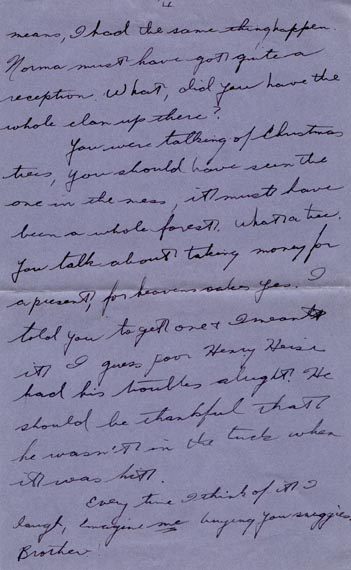 4
means, I had the same thing happen.
Norma must have got quite a
reception. What, did you have the
whole clan up there?
You were talking of Christmas
trees, you should have seen the
one in the mess, it must have
been a whole forest. What a tree.
You talk about taking money for
a present, for heavens sakes yes. I
told you to get one & I meant
it. I guess poor Henry Heise
had his troubles alright. He
should be thankful that
he wasn't in the truck when
it was hit.
Every time I think of it I
laugh, imagine me buying you snuggies.
Brother!